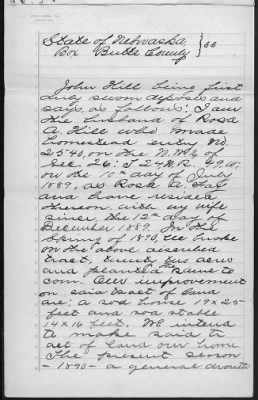 State of Nebraska
Box Butte County } SS
John Hill being first
duly sworn deposes and
says, as follows: I am
the husband of Rosa
A. Hill who made
homestead entry No.
2540, on the N.W.¼ of
Sec. 26. T 27 N R 49 W,
on the 10th day of July
1889, as Rosa A. Fay
and have resided
thereon with my wife
since the 12th day of
December 1889. In the
Spring of 1890, we broke
on the above described
tract, twenty two acres
and planted the same to
corn. Our improvement
on said tract of land
are: a sod house 19 x 25
feet and sod stable
14 x 16 feet. We intend
to make said tr
act of land our home
The present season
- 1890 - a general drouth